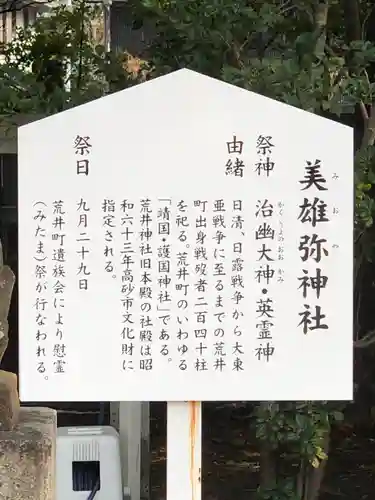 美雄弥神社
みおや
祭神 治幽大神・英霊神
かくりよのおおかみ
由緒 日清、日露戦争から大東
亜戦争に至るまでの荒井
町出身戦歿者二百四十柱
を祀る。荒井町のいわゆる
「靖国・護国神社」である。
荒井神社旧本殿の社殿は昭
和六十三年高砂市文化財に
指定される。
祭日 九月二十九日
荒井町遺族会により慰霊
(みたま)祭が行なわれる。